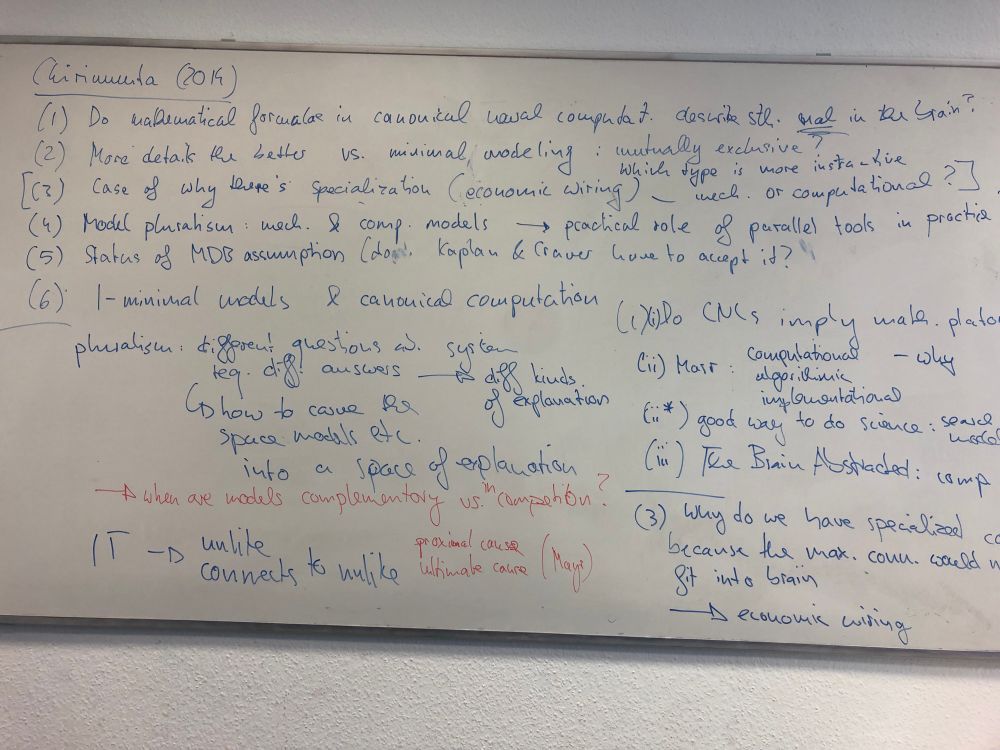 Chirimuuta (2014)
(1) Do mathematical formulae in canonical neural computat. describe sth. real in the brain?
(2) More details the better vs. minimal modeling : mutually exclusive?
which type is more instructive
[(3) Case of why there's specialization (economic wiring) – mech. or computational?]
(4) Model pluralism : mech. & comp. models → practical role of parallel tools in practice
(5) Status of MDB assumption ( Kaplan & Craver have to accept it?
(6) I-minimal models & canonical computation
pluralism: different questions ab. system
req. diff. answers → diff kinds
of explanation
↳ how to carve the
space models etc.
into a space of explanation
→ when are models complementary vs. in competition?
IT → unlike
connects to unlike
proximal cause
ultimate cause (Mayr)
(1)(i) Do CNCs imply math. plato
(ii) Marr : computational – why
algorithmic
implementational
(ii*) good way to do science : search
(iii) The Brain Abstracted : comp
(3) Why do we have specialized co
because the max. conn. would n
fit into brain
→ economic wiring